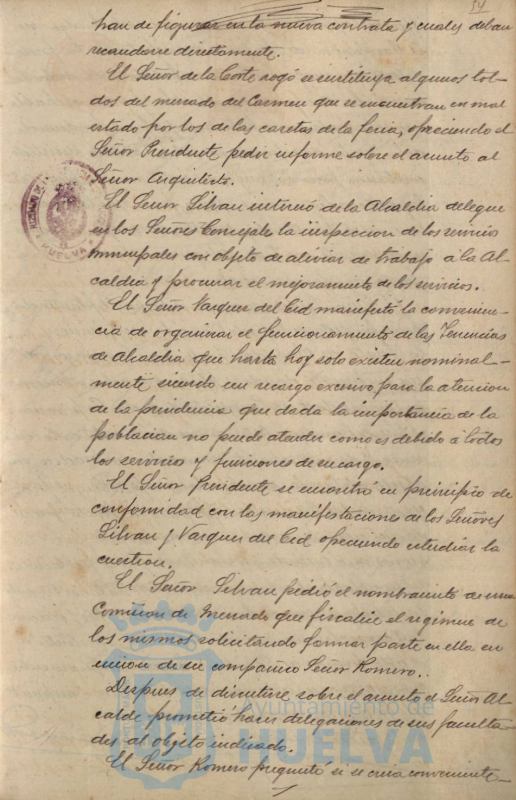 54
han de figurar en la nueva contrata y cuales deban
recaudarse directamente.
El Señor de la Corte rogó se sustituya algunos tol-
dos del mercado del Carmen que se encuentran en mal
estado por los de las casetas de la feria, ofreciendo el
Señor Presidente pedir informe sobre el asunto al
Señor Arquitecto.
El Señor Silvan interesó de la Alcaldia delegue
en los Señores Concejales la inspeccion de los servicios
municipales con objeto de aliviar de trabajo a la Al-
caldia y procurar el mejoramiento de los servicios.
El Señor Vazquez del Cid manifestó la convenien-
cia de organizar el funcionamiento de las Tenencias
de Alcaldia que hasta hoy solo existen nominal-
mente siendo un recargo excesivo para la atencion
de la presidencia que dada la importancia de la
poblacion no puede atender como es debido a todos
los servicios y funciones de su cargo.
El Señor Presidente se encontró en principio de
conformidad con las manifestaciones de los Señores
Silvan y Vazquez del Cid ofreciendo estudiar la
cuestion.
El Señor Silvan pidió el nombramiento de una
Comision de Mercado que fiscalice el regimen de
los mismos solicitando formar parte en ella en
union de su compañero Señor Romero.
Despues de discutirse sobre el asunto el Señor Al-
calde prometió hacer delegaciones de sus faculta-
des al objeto indicado.
El Señor Romero preguntó si se creia conveniente
HUELVA
Ayuntamiento de
HUELVA